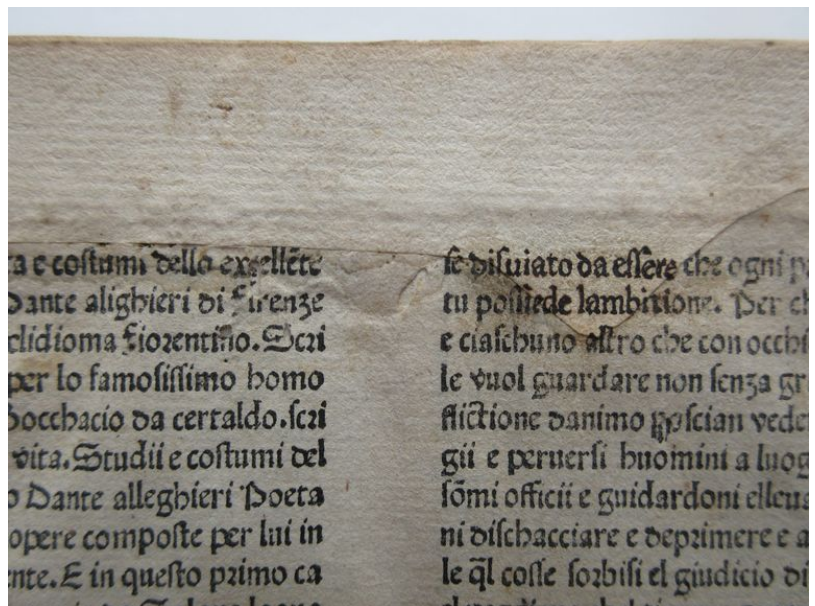 ta e costumi dello excellẽte
Dante alighieri di firenze
clidioma fiorentino. Scri
per lo famosissimo homo
bocchacio da certaldo. scri
vita. Studii e costumi del
o Dante alleghieri Poeta
opere composte per lui in
nte. E in questo primo ca
se disuiato da essere che ogni
tu possiede lambitione. Per
e ciaschuno altro che con occhi
le vuol guardare non senza
flictione danimo
gii e peruersi huomini a
sõmi officii e guidardoni
ni dischacciare e deprimere e
le q̃l cosse sorbisi el giudicio di